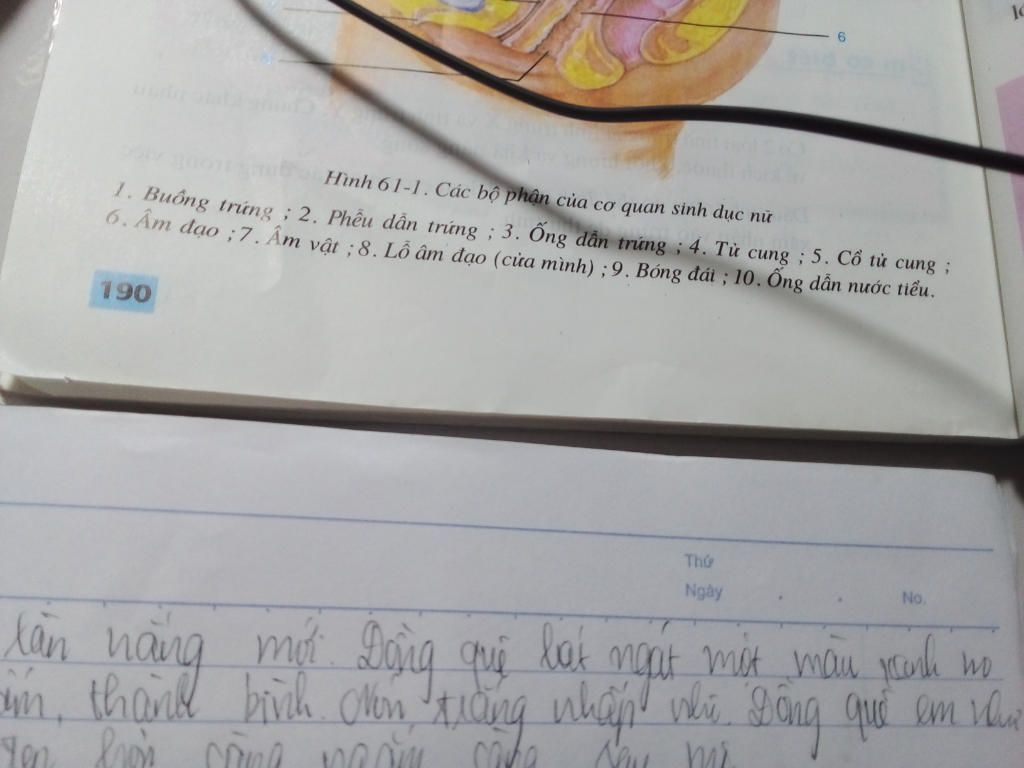 6
Hình 61-1. Các bộ phận của cơ quan sinh dục nữ
1. Buồng trứng ; 2. Phễu dẫn trứng ; 3. Ống dẫn trứng ; 4. Tử cung ; 5. Cổ tử cung ;
6. Âm đạo ; 7. Âm vật ; 8. Lỗ âm đạo (cửa mình) ; 9. Bóng đái ; 10. Ống dẫn nước tiểu.
190
Thứ
Ngày . . No.
làn nắng mới. Đồng quê bát ngát một màu xanh no
ấm, thành bình. Nón trắng nhấp nhô. Đồng quê em như
càng ngắm càng